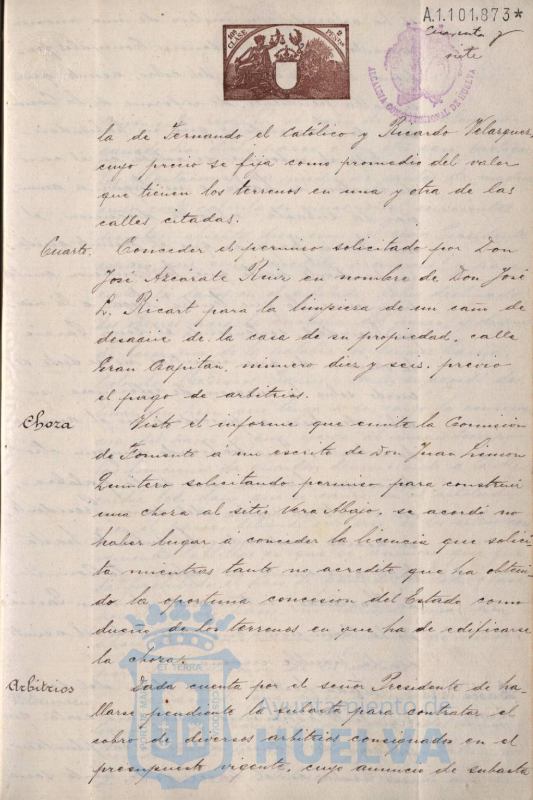 A.1.101.873*
Cuarenta y
siete
10ª CLASE
2 PESETAS
ALCALDIA CONSTITUCIONAL DE HUELVA
la de Fernando el Católico y Ricardo Velazquez,
cuyo precio se fija como promedio del valor
que tienen los terrenos en una y otra de las
calles citadas.
Cuarto. Conceder el permiso solicitado por Don
José Azcárate Ruiz en nombre de Don José
L. Ricart para la limpieza de un caño de
desagüe de la casa de su propiedad, calle
Gran Capitan, número diez y seis, previo
el pago de arbitrios.
Choza Visto el informe que emite la Comisión
de Fomento a un escrito de Don Juan Limon
Quintero solicitando permiso para construir
una choza al sitio Vera Abajo, se acordó no
haber lugar á conceder la licencia que solici-
ta mientras tanto no acredite que ha obteni-
do la oportuna concesion del Estado como
dueño de los terrenos en que ha de edificarse
la choza.
Arbitrios Dada cuenta por el señor Presidente de ha-
llarse pendiente la subasta para contratar el
cobro de diversos arbitrios consignados en el
presupuesto vigente, cuyo anuncio de subasta
Ayuntamiento de
HUELVA